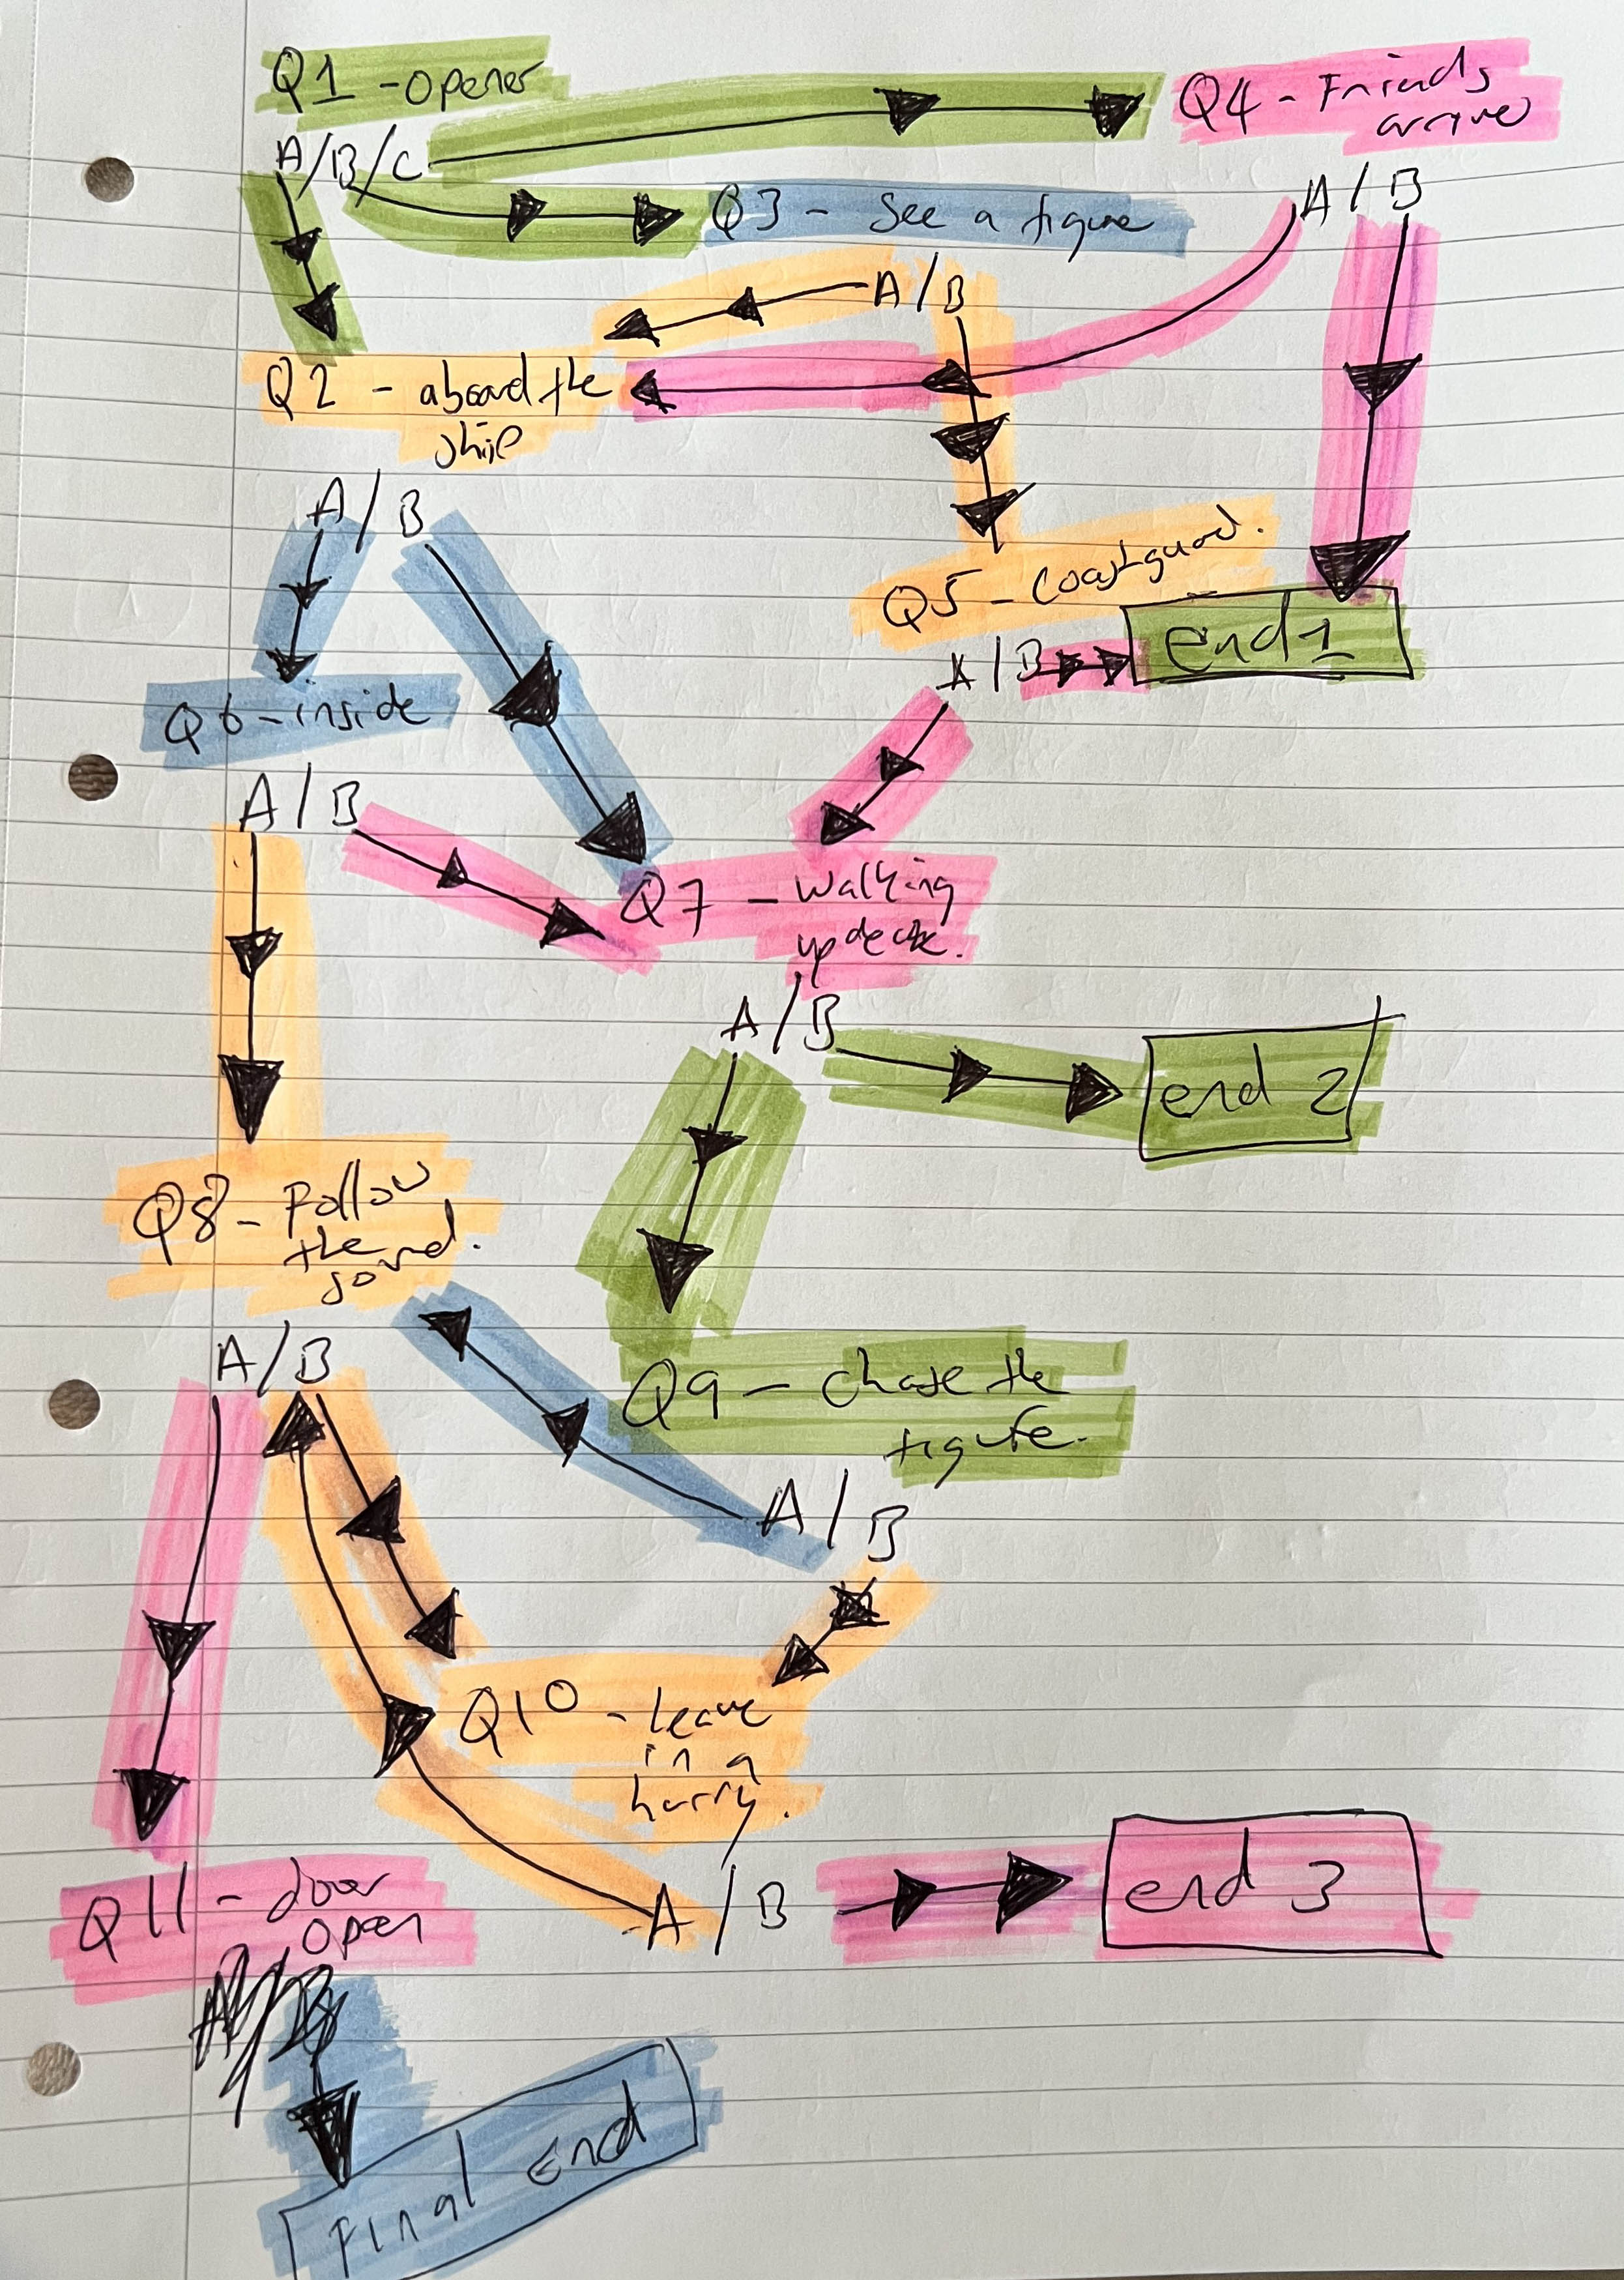 Q1 - opener
Q4 - Friends
arrive
A/B/C
Q3 - See a figure
A / B
A / B
Q2 - aboard the
ship
A / B
Q5 - Coastguard.
end 1
A / B
Q6 - inside
A / B
Q7 - Walking
up deck.
A / B
end 2
Q8 - Follow
the
sound.
A / B
Q9 - chase the
figure.
A / B
Q10 - leave
in a
hurry.
A / B
end 3
Q11 - door
open
A/B
Final end